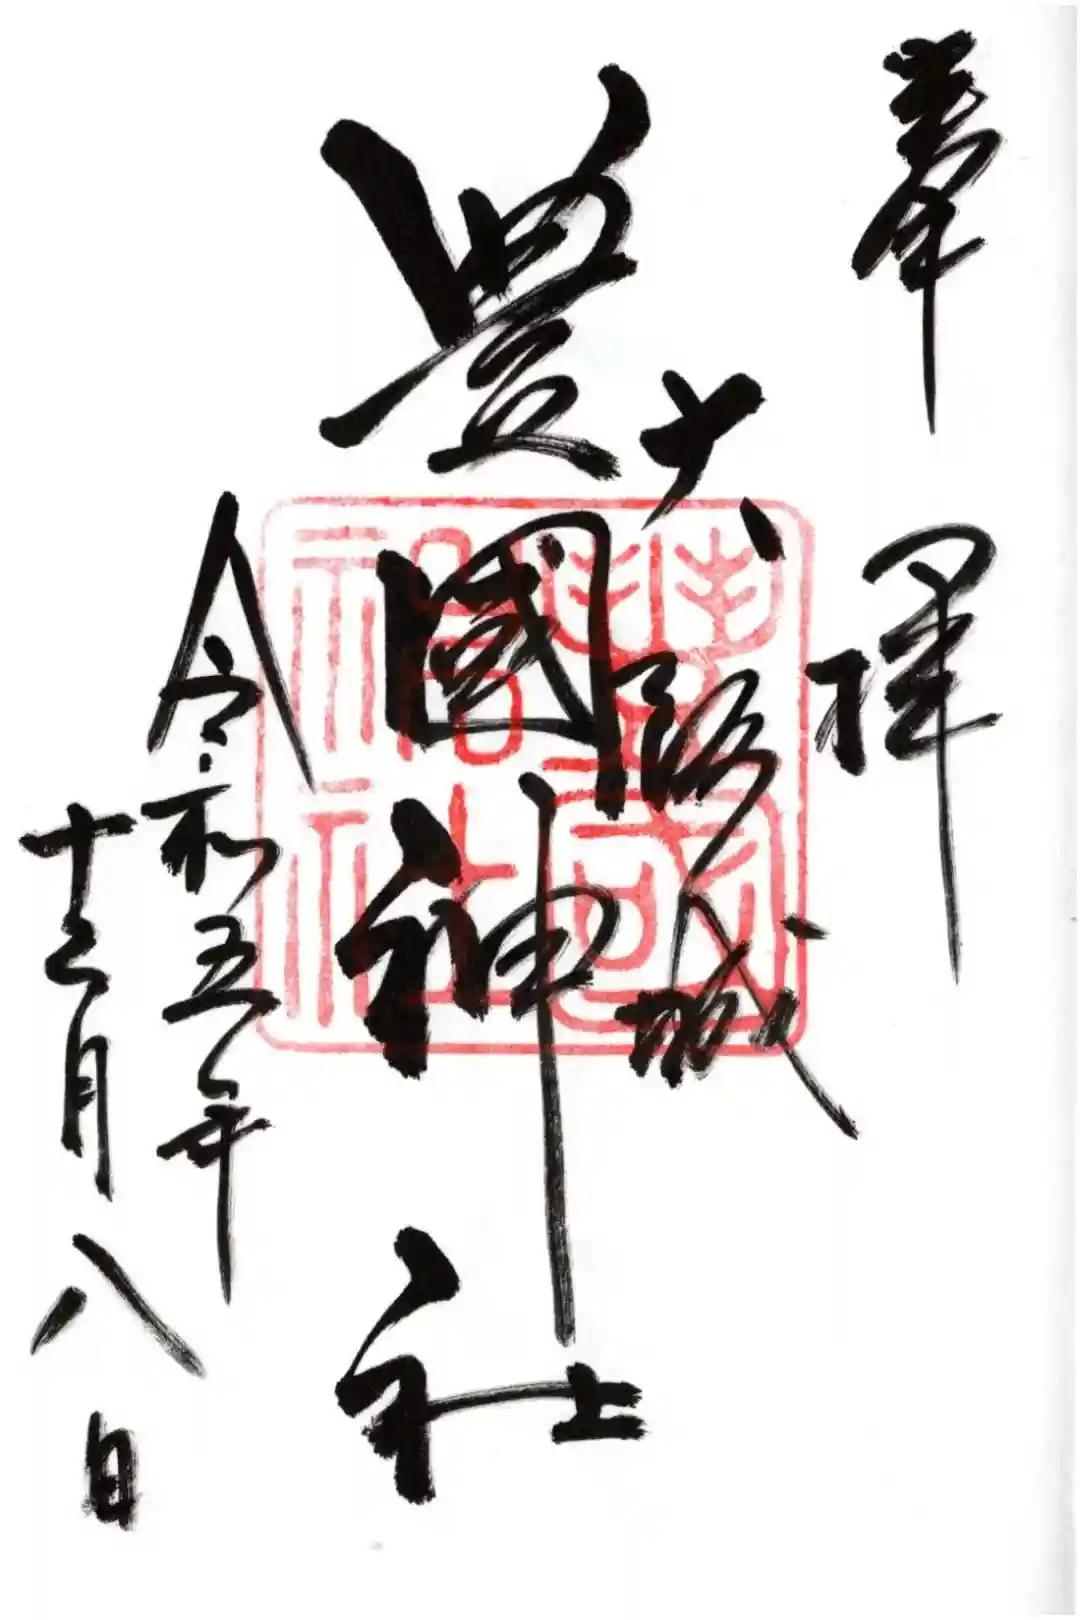 奉拝
大阪城
豊國神社
令和五年
十二月八日
豐國神社